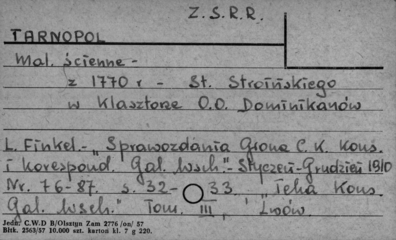 Z.S.R.R.
TARNOPOL
Mal. ścienne -
z 1770 r - St. Stroińskiego
w Klasztorze O.O. Dominikanów
L. Finkel. - „Sprawozdania Grona C.K. Kons.
i korespond. Gal. Wsch." - Styczeń-Grudzień 1910
Nr. 76-87. s. 32-33. "Teka Kons.
Gal. Wsch." Tom. III, Lwów
Jedn. C.W.D B/Olsztyn Zam 2776 /on/ 57
Błtk. 2563/57 10.000 szt. karton kl. 7 g 220.